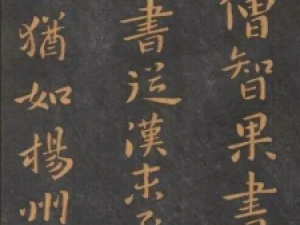 僧智果書
書從漢末
猶如楊州